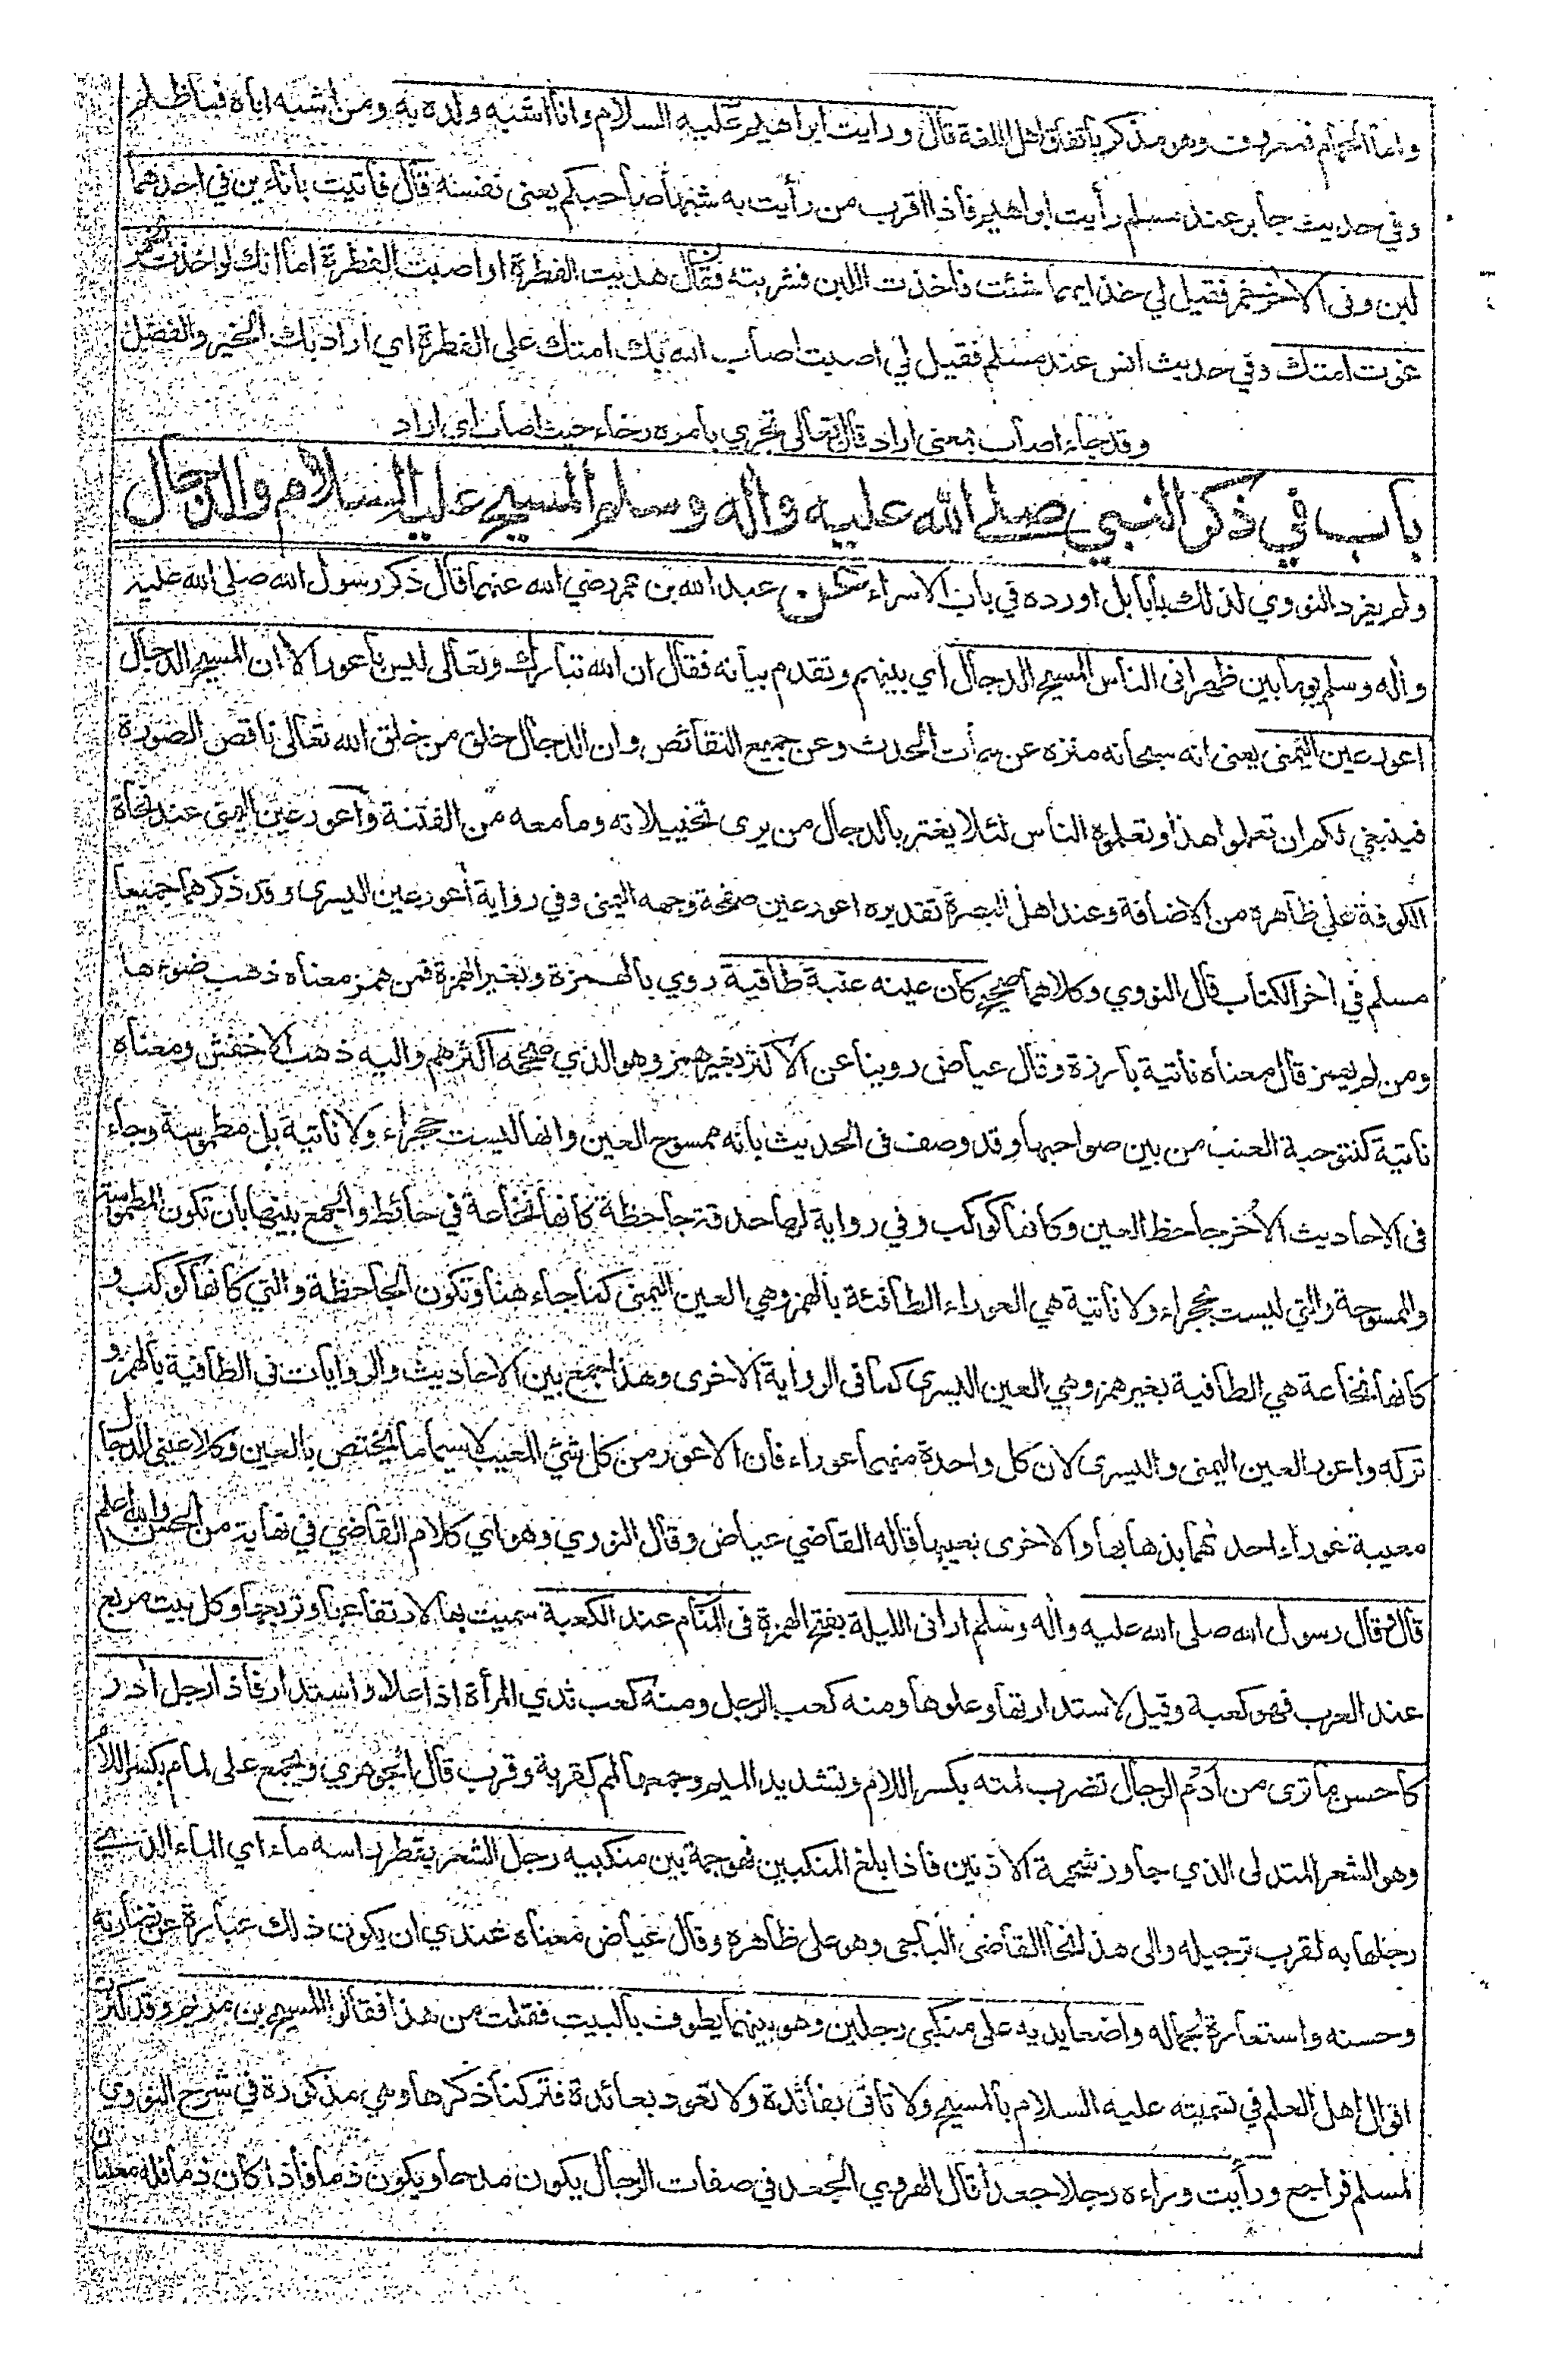 واما الحمام فمعروف وهو مذكر باتفاق اهل اللغة قال ورايت ابراهيم عليه السلام وانا اشبه ولده به ومن اشبه اباه فما ظلم
وفي حديث جابر عند مسلم رأيت ابراهيم فاذا اقرب من رأيت به شبها صاحبكم يعني نفسه قال فاتيت باناءين في احدهما
لبن وفى الاخر خمر فقيل لي خذ ايهما شئت فاخذت اللبن فشربته فقال هديت الفطرة او اصبت الفطرة اما انك لو اخذت الخمر
غوت امتك وفي حديث انس عند مسلم فقيل لي اصبت اصاب الله بك امتك على الفطرة اي اراد بك الخير والفضل
وقد جاء اصاب بمعنى اراد قال تعالى تجري بامره رخاء حيث اصاب اي اراد
باب في ذكر النبي صلى الله عليه واله وسلم المسيح عليه السلام والدجال
ولم يفرد النووي لذلك بابا بل اورده في باب الاسراء عن عبد الله بن عمر رضي الله عنهما قال ذكر رسول الله صلى الله عليه
واله وسلم يوما بين ظهرانى الناس المسيح الدجال اي بينهم وتقدم بيانه فقال ان الله تبارك وتعالى ليس باعور الا ان المسيح الدجال
اعور عين اليمنى يعنى انه سبحانه منزه عن سمات الحدث وعن جميع النقائص وان الدجال خلق من خلق الله تعالى ناقص الصورة
فينبغي لكم ان تعلموا هذا وتعلموه الناس لئلا يغتر بالدجال من يرى تخييلاته وما معه من الفتنة واعور عين اليمنى عند نحاة
الكوفة على ظاهره من الاضافة وعند اهل البصرة تقديره اعور عين صفحة وجهه اليمنى وفي رواية اعور عين اليسرى وقد ذكرهما جميعا
مسلم في اخر الكتاب قال النووي وكلاهما صحيح كان عينه عنبة طافية روي بالهمزة وبغير الهمزة فمن همز معناه ذهب ضوءها
ومن لم يهمز قال معناه ناتية بارزة وقال عياض روينا عن الاكثر بغير همز وهو الذي صححه اكثرهم واليه ذهب الاخفش ومعناه
ناتية كنتو حبة العنب من بين صواحبها وقد وصف فى الحديث بانه ممسوح العين وانها ليست حجراء ولا ناتية بل مطموسة وجاء
فى الاحاديث الاخر جاحظ العين وكانها كوكب وفي رواية لها حدقة جاحظة كانها نخاعة في حائط والجمع بينها بان تكون المطموسة
والممسوحة والتي ليست بحجراء ولا ناتية هي العوراء الطافئة بالهمز وهي العين اليمنى كما جاء هنا وتكون الجاحظة والتي كانها كوكب و
كانها نخاعة هي الطافية بغير همز وهي العين اليسرى كما فى الرواية الاخرى وهذا جمع بين الاحاديث والروايات فى الطافية بالهمز و
تركه واعور العين اليمنى واليسرى لان كل واحدة منهما عوراء فان الاعور من كل شئ المعيب لاسيما ما يختص بالعين وكلا عيني الدجال
معيبة عوراء احداهما بذهابها والاخرى بعيبها قاله القاضي عياض وقال النووي وهو اي كلام القاضي في نهاية من الحسن والله اعلم
قال وقال رسول الله صلى الله عليه واله وسلم ارانى الليلة بفتح الهمزة فى المنام عند الكعبة سميت بها لارتفاعها وتربعها وكل بيت مربع
عند العرب فهو كعبة وقيل لاستدارتها وعلوها ومنه كعب الرجل ومنه كعب ثدي المرأة اذا علا واستدار فاذا رجل ادم
كاحسن ما ترى من ادم الرجال تضرب لمته بكسر اللام وتشديد الميم وجمعها لمم كقربة وقرب قال الجوهري ويجمع على لمام بكسر اللام
وهو الشعر المتدلى الذي جاوز شحمة الاذنين فاذا بلغ المنكبين فهو جمة بين منكبيه رجل الشعر يقطر راسه ماء اي الماء الذي
رجلها به لقرب ترجيله والى هذا نحا القاضي الباجى وهو على ظاهره وقال عياض معناه عندي ان يكون ذلك عبارة عن نضارته
وحسنه واستعارة لجماله واضعا يديه على منكبي رجلين وهو بينهما يطوف بالبيت فقلت من هذا فقالوا المسيح بن مريم وقد كثرت
اقوال اهل العلم في تسميته عليه السلام بالمسيح ولا تاتى بفائدة ولا تعود بعائدة فتركنا ذكرها وهي مذكورة في شرح النووي
لمسلم فراجع ورأيت وراءه رجلا جعدا قال الهروي الجعد في صفات الرجال يكون مدحا ويكون ذما فاذا كان ذما فله معنيان